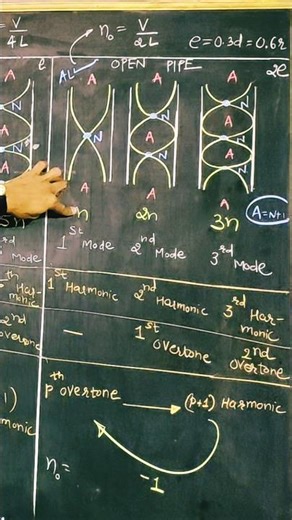 V
4L
n₀ = V
2L
e = 0.3d = 0.6r
e
OPEN PIPE
2e
AL
A A A
N N N
A A
N N
A
N
A A A
n 2n 3n
A = N+1
1st Mode 2nd Mode 3rd Mode
rd Mode
th Har-
monic
1st Harmonic 2nd Harmonic 3rd Har-
monic
2nd
overtone
— 1st overtone 2nd overtone
pth overtone → (p+1) Harmonic
1)
monic
-1
n₀ =